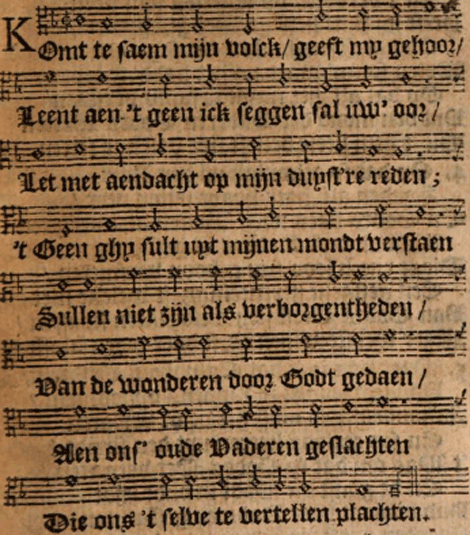 KOmt te saem mijn volck/ geeft my gehoor/
Leent aen 't geen ick seggen sal uw' oor/
Let met aendacht op mijn duyst're reden;
't Geen ghy sult uyt mijnen mondt verstaen
Sullen niet zijn als verborgentheden/
Van de wonderen door Godt gedaen/
Aen ons' oude Vaderen geslachten
Die ons 't selve te vertellen plachten.